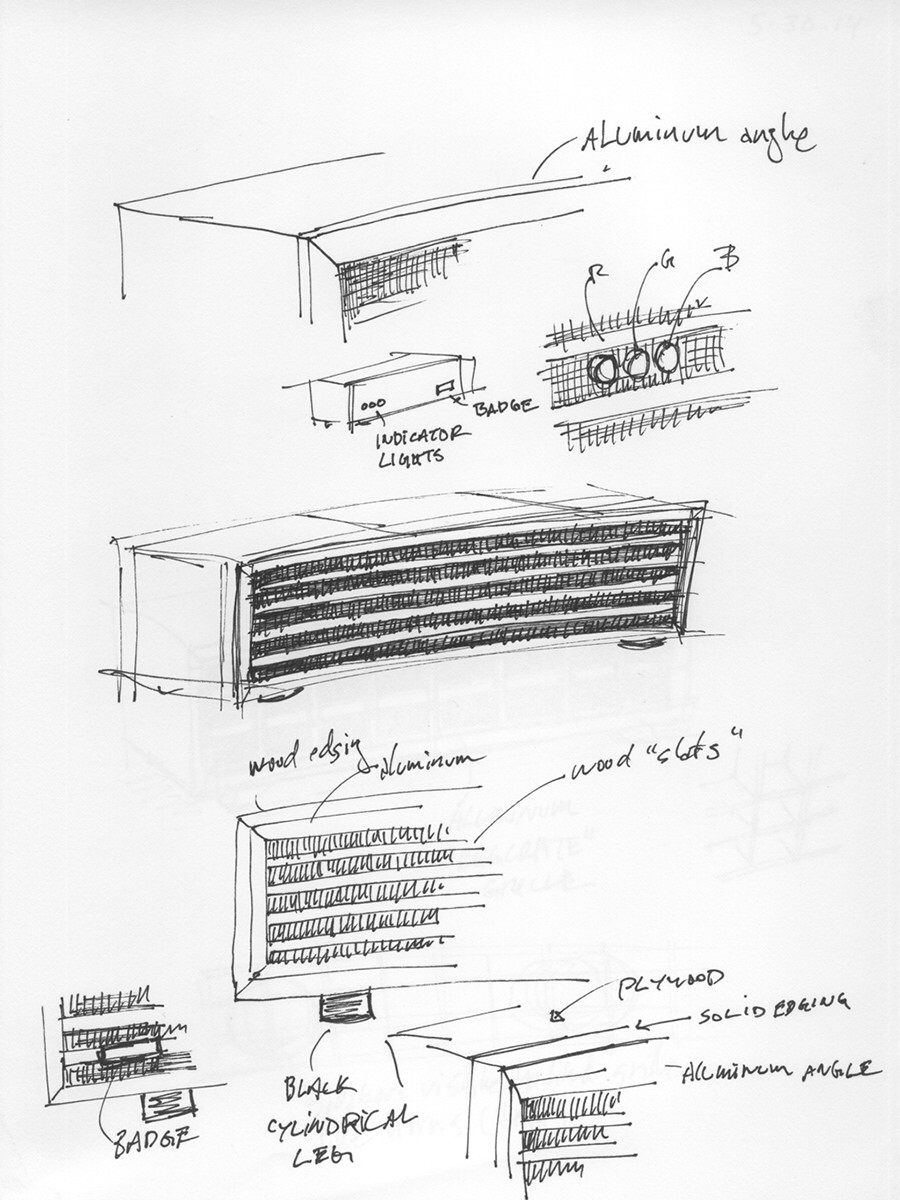 5.30.14
ALuminum angle
R G B
BADGE
INDICATOR
LIGHTS
wood edging
aluminum
wood "slats"
PLYWOOD
SOLID EDGING
ALUMINUM ANGLE
BLACK
CYLINDRICAL
LEG
BADGE